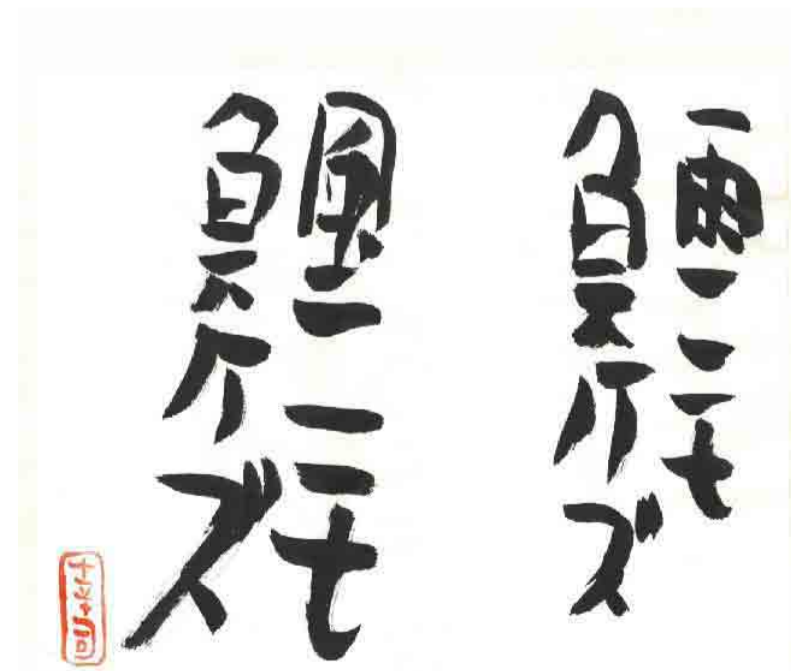 雨ニモ
負ケズ
風ニモ
負ケズ